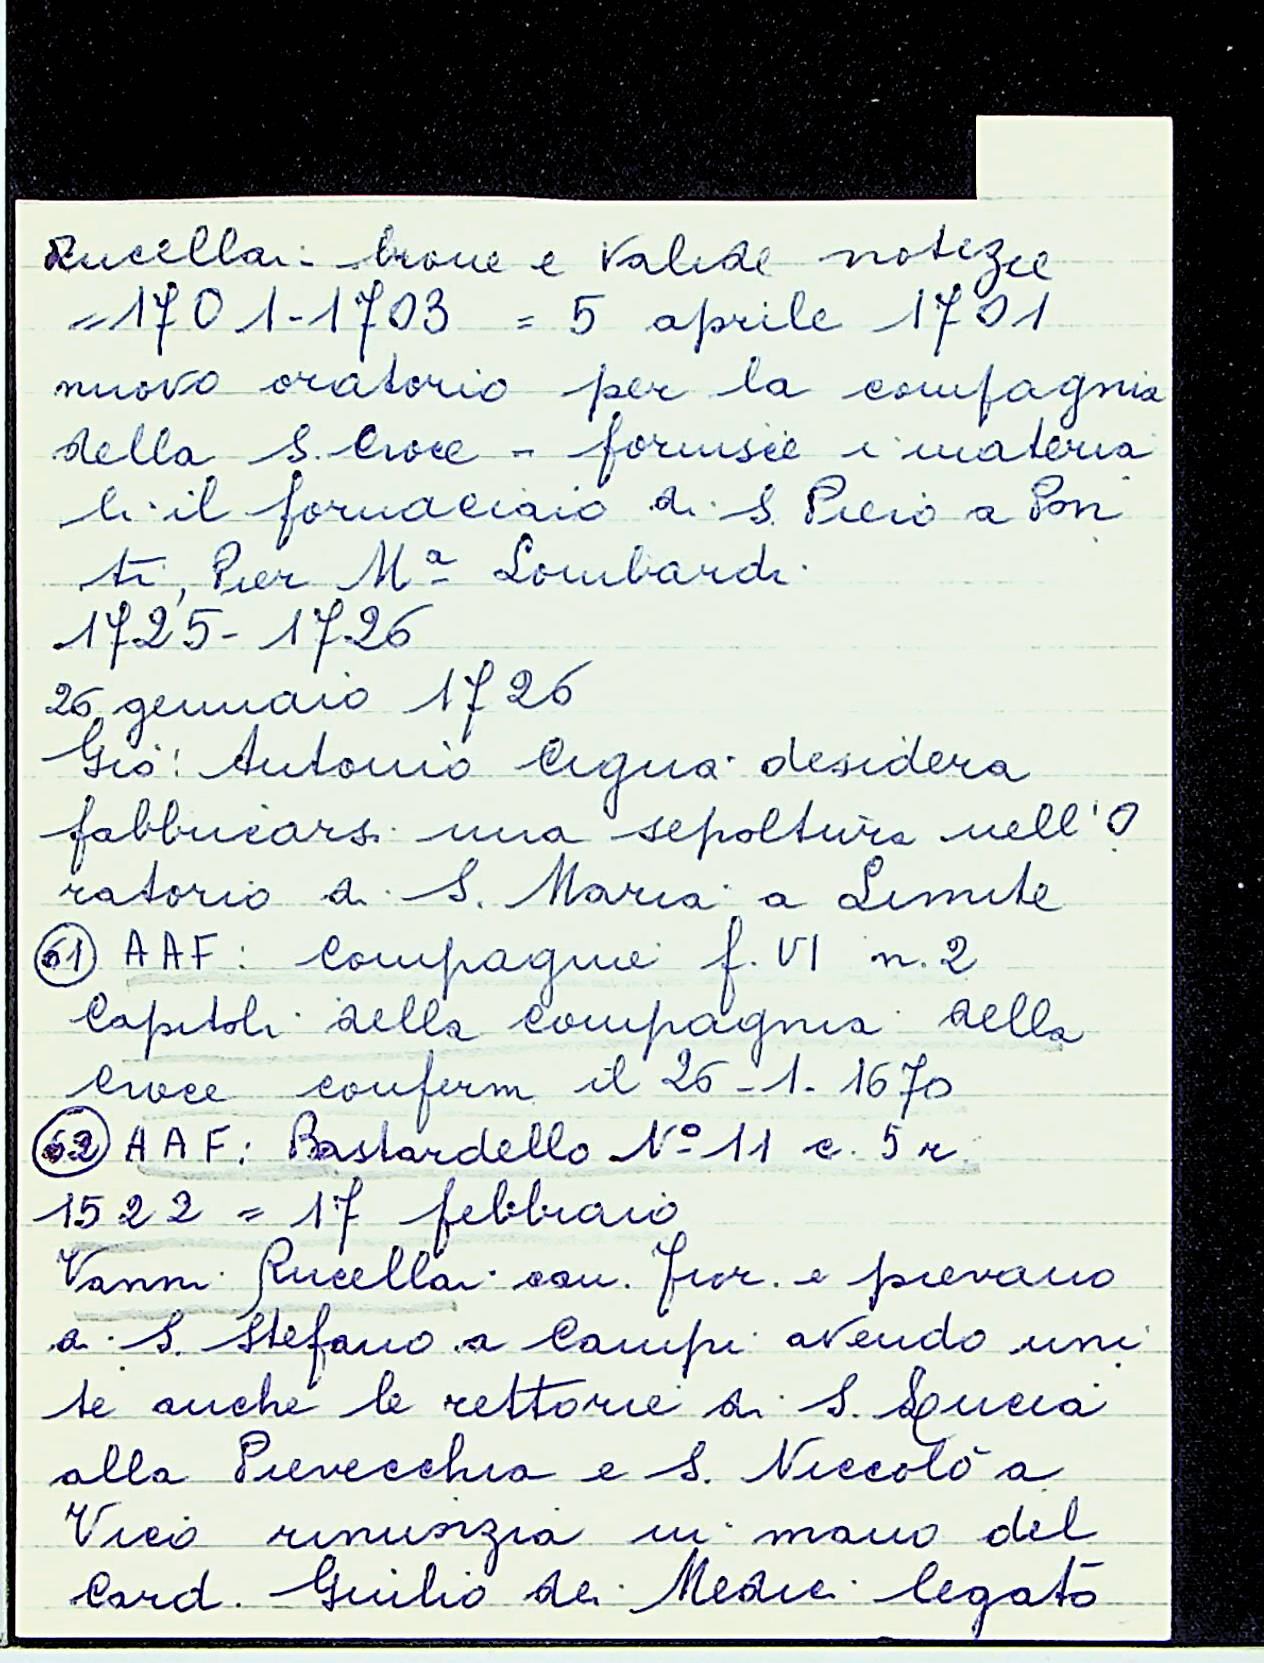 Rucellai - brave e valide notizie
= 1701-1703 = 5 aprile 1701
nuovo oratorio per la compagnia
della S. Croce - fornisce i materia
li il fornaciaio di S. Piero a Pon
ti, Pier Mª Lombardi
1725-1726
26 gennaio 1726
Gio: Antonio Cigna desidera
fabbricarsi una sepoltura nell'O
ratorio di S. Maria a Limite
61 AAF: Compagnie f. VI n. 2
Capitoli della compagnia della
Croce conferm il 26-1-1670
62 AAF: Bastardello Nº 11 c. 5 r.
1522 = 17 febbraio
Vanni Rucellai can. Fior. e pievano
a S. Stefano a Campi avendo uni
te anche le rettorie di S. Lucia
alla Pievecchia e S. Niccolò a
Vico rinunzia in mano del
Card. Giulio de Medici legato